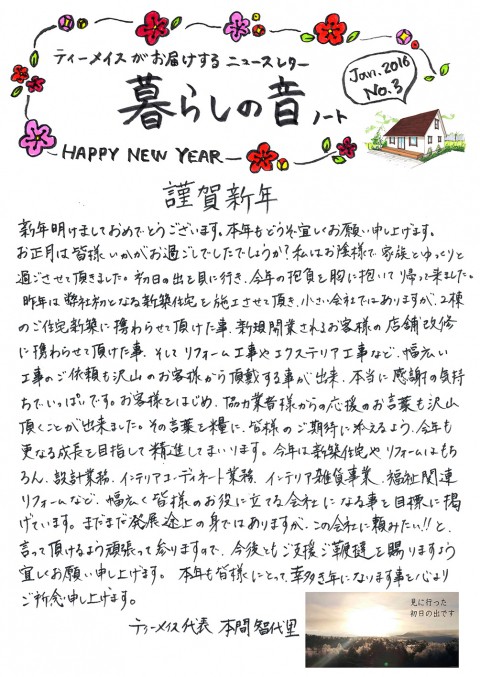 ティーメイスがお届けするニュースレター
Jan. 2016
No.3
暮らしの音ノート
HAPPY NEW YEAR
謹賀新年
新年明けましておめでとうございます。本年もどうぞ宜しくお願い申し上げます。
お正月は皆様いかがお過ごしでしたでしょうか?私はお陰様で家族とゆっくりと
過ごさせて頂きました。初日の出を見に行き、今年の抱負を胸に抱いて帰って来ました。
昨年は弊社初となる新築住宅を施工させて頂き、小さい会社ではありますが、2棟
のご住宅新築に携わらせて頂けた事、新規開業されるお客様の店舗改修
に携わらせて頂けた事、そしてリフォーム工事やエクステリア工事など、幅広い
工事のご依頼も沢山のお客様から頂戴する事が出来、本当に感謝の気持
ちでいっぱいです。お客様をはじめ、協力業者様からの応援のお言葉も沢山
頂くことが出来ました。その言葉を糧に、皆様のご期待に添えるよう、今年も
更なる成長を目指して精進してまいります。今年は新築住宅やリフォームはもち
ろん、設計業務、インテリアコーディネート業務、インテリア雑貨事業、福祉関連
リフォームなど、幅広く皆様のお役に立てる会社になる事を目標に掲
げています。まだまだ発展途上の身ではありますが、この会社に頼みたい!!と、
言って頂けるよう頑張って参りますので、今後ともご支援ご鞭撻を賜りますよう
宜しくお願い申し上げます。本年も皆様にとって、幸多き年になります事を心より
ご祈念申し上げます。
ティーメイス代表 本間智代里
見に行った
初日の出です